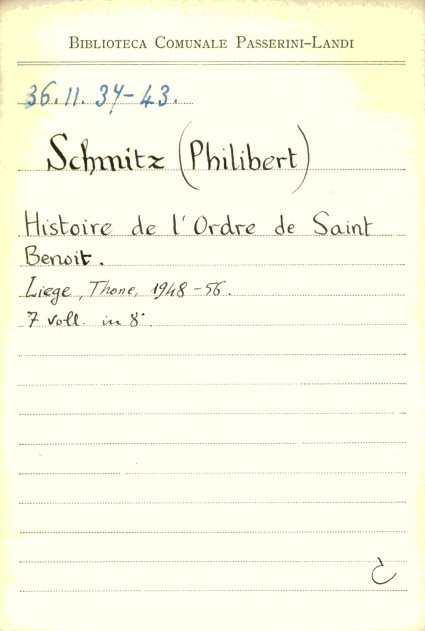 BIBLIOTECA COMUNALE PASSERINI-LANDI
36.11.37-43.
Schmitz (Philibert)
Histoire de l'Ordre de Saint
Benoit.
Liege, Thone, 1948-56.
7 voll. in 8°.